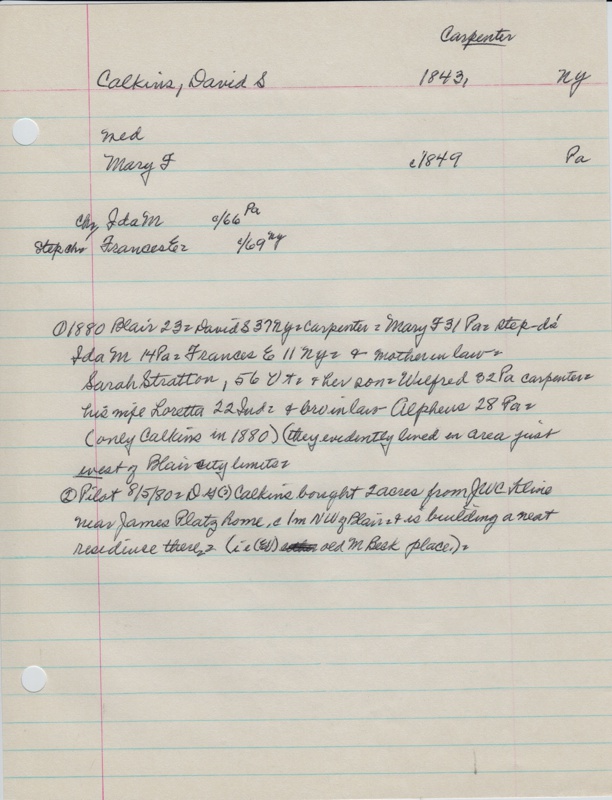 Carpenter
Calkins, David S 1843, Ny
med
Mary F c1849 Pa
Chn Ida M c/66 Pa
Step chn Frances E= c/69 Ny
① 1880 Blair 23= David S 37 Ny= Carpenter= Mary F 31 Pa= step-da
Ida M 14 Pa= Frances E 11 Ny= & mother in law=
Sarah Stratton, 56 Vt= & her son= Wilfred 32 Pa carpenter=
his wife Loretta 22 Ind= & bro in law Alpheus 28 Pa=
(only Calkins in 1880) (they evidently lived in area just
west of Blair city limits=
② Pilot 8/5/80= D Calkins bought 2 acres from JWC Kline
near James Platz home, c 1m NW of Blair= & is building a neat
residence there,= (ie old M Besk place.)=